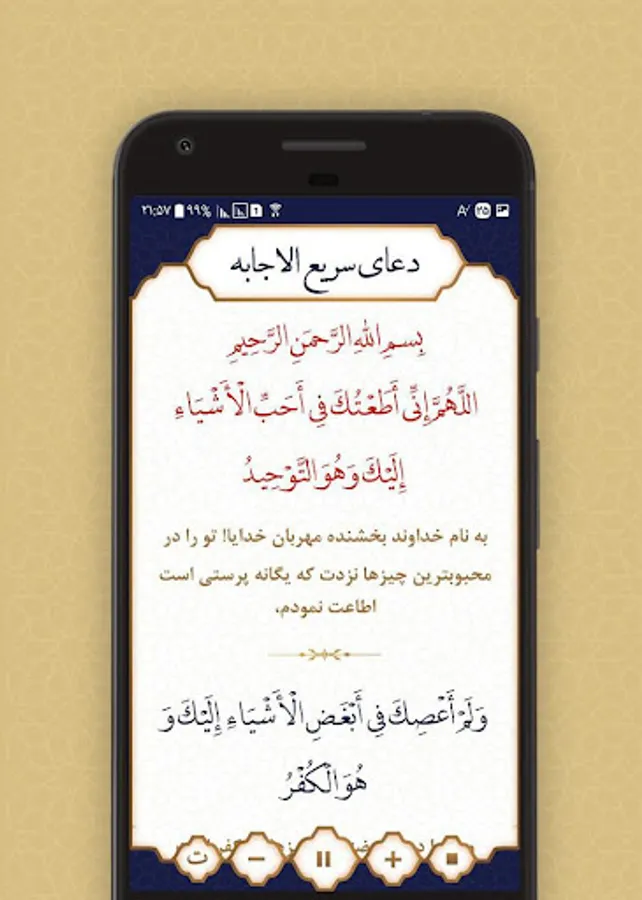 ۲۱:۵۷ ۹۹% 1 A ۲۵
دعای سریع الاجابه
بِسمِ اللهِ الرَّحمَنِ الرَّحِیمِ
اللَّهُمَّ إِنِّی أَطَعْتُكَ فِی أَحَبِّ الْأَشْیَاءِ
إِلَیْكَ وَ هُوَ التَّوْحِیدُ
به نام خداوند بخشنده مهربان خدایا! تو را در
محبوبترین چیزها نزدت که یگانه پرستی است
اطاعت نمودم،
وَ لَمْ أَعْصِكَ فِی أَبْغَضِ الْأَشْیَاءِ إِلَیْكَ وَ
هُوَ الْكُفْرُ
ت